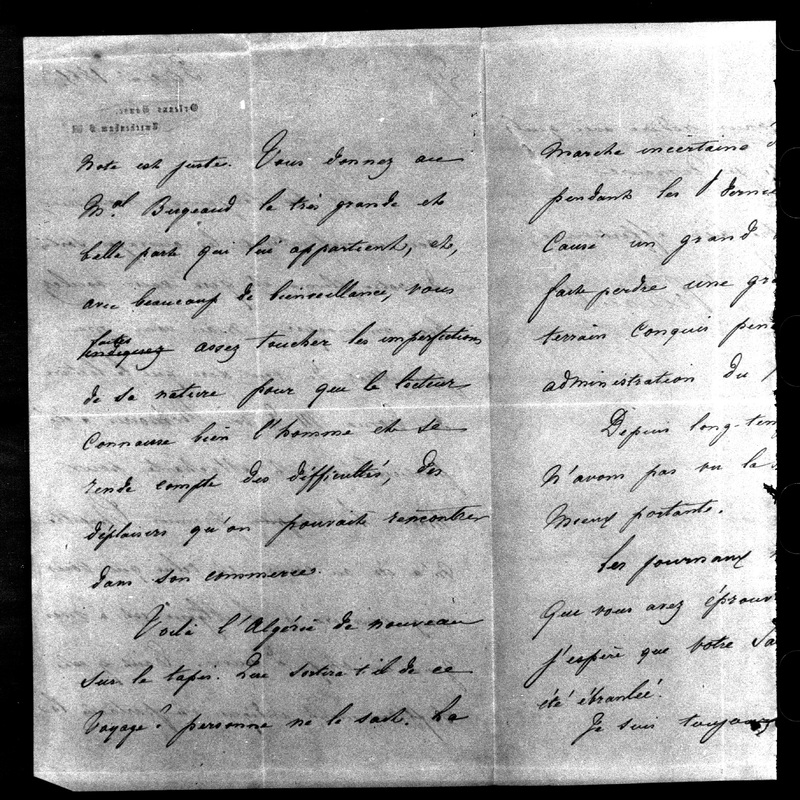 note est juste. Vous donnez au
Mal Bugeaud la très grande et
belle part qui lui appartient, et,
avec beaucoup de bienveillance, vous
faites
indiquez assez toucher les imperfections
de sa nature pour que le lecteur
connaisse bien l'homme et se
rende compte des difficultés, des
déplaisirs qu'on pouvait rencontrer
dans son commerce.
Voilà l'Algérie de nouveau
sur le tapis. Que sortira t'il de ce
voyage? personne ne le sait. La
marche incertaine
pendant les dernie
cause un grand
fait perdre une gra
terrain conquis pen
administration du
Depuis long-tem
n'avons pas vu la
mieux portante.
Les journaux
que vous avez éprouv
j'espère que votre sa
été ébranlée.
Je suis toujours